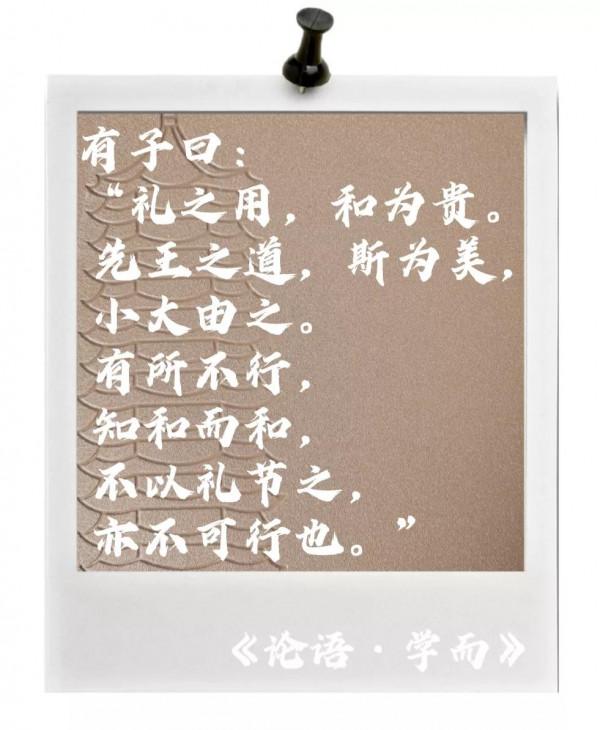 有子曰：
“礼之用，和为贵。
先王之道，斯为美，
小大由之。
有所不行，
知和而和，
不以礼节之，
亦不可行也。”
《论语·学而》